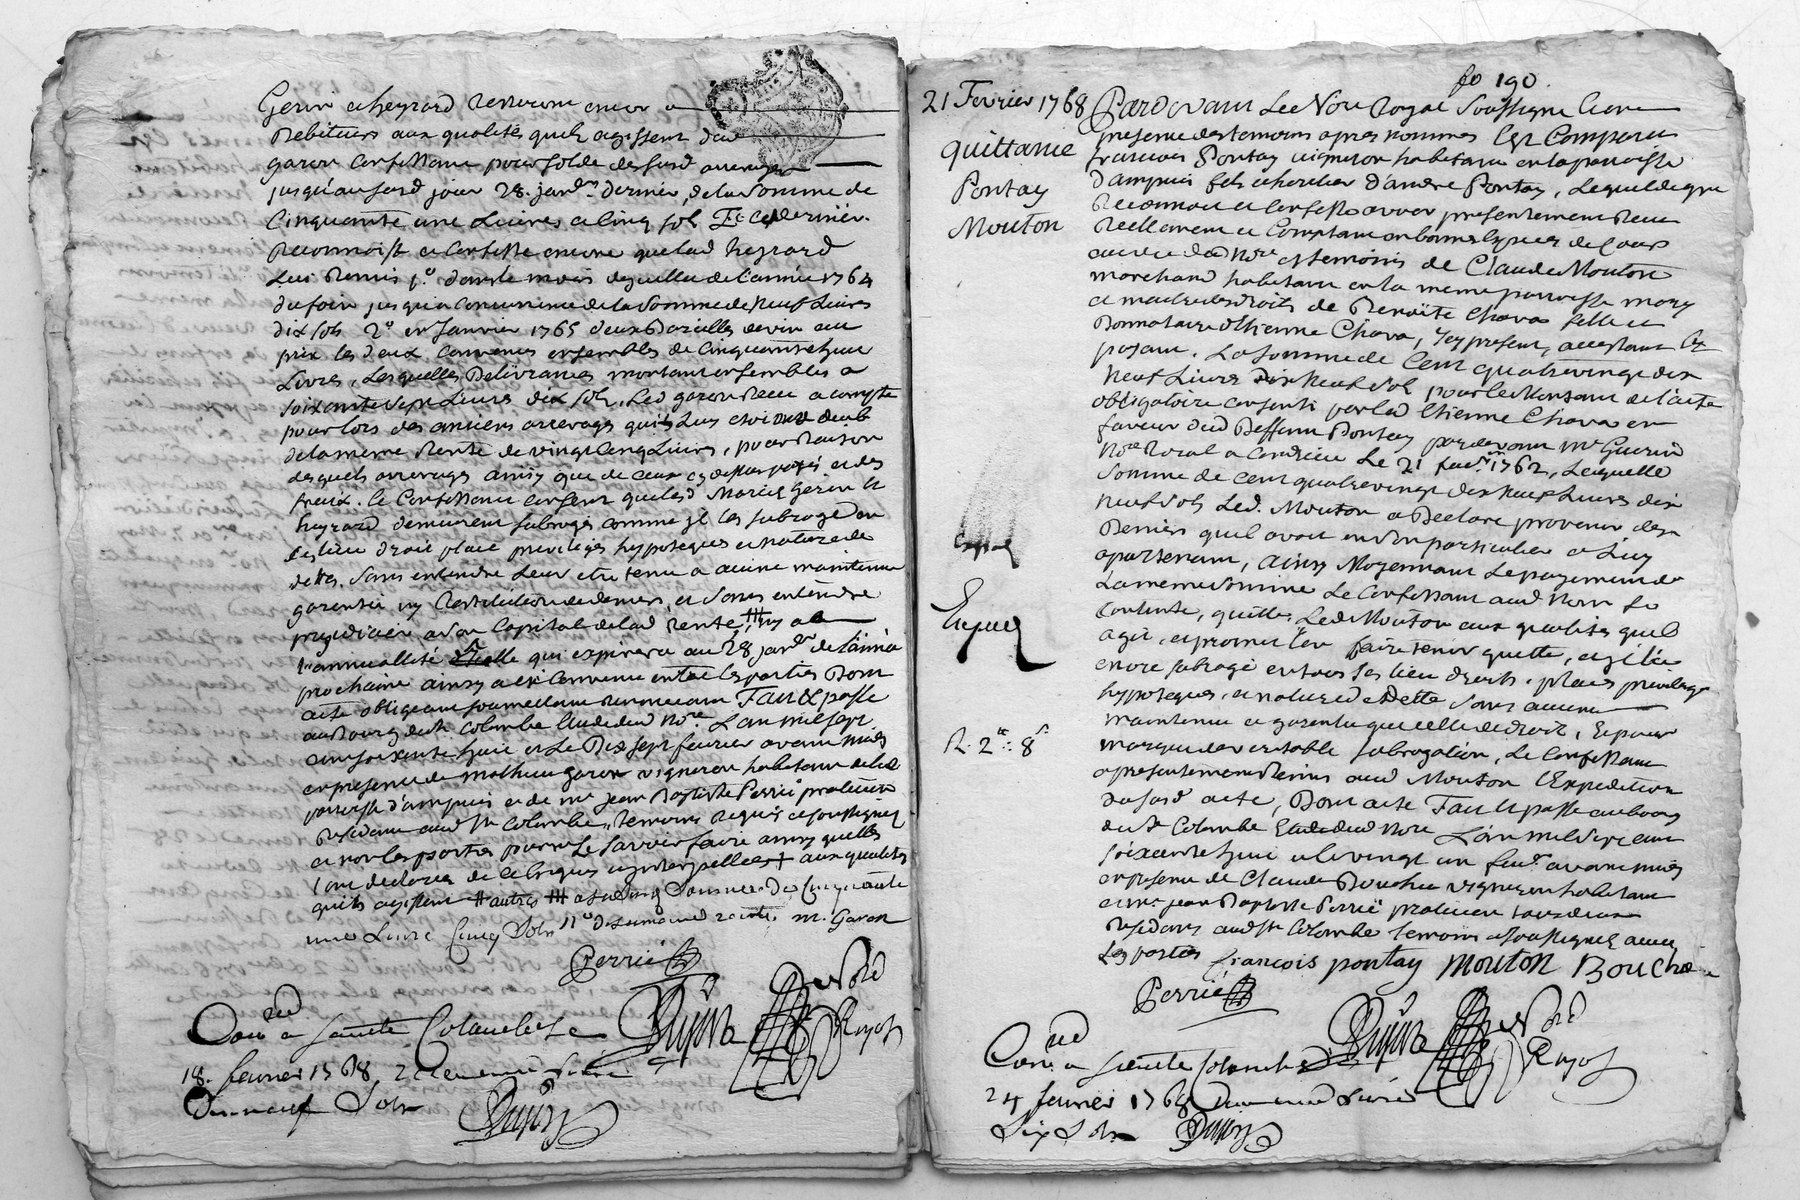 Gerin et heyrard redevoient encor a
Debiteurs aux qualités quils agissent dud
garon Confessant pour solde desurd arrerages
jusqu'au surd jour 28. janv. dernier, de la Somme de
Cinquante une Livres Cinq sols
Reconnoist et Confesse encore que led heyrard
Luy Remis 1° dans le mois de juillet de l'année 1764
du foin jusqu'a Concurrence de la Somme de Neuf Livres
dix sols 2° en Janvier 1765 deux Barilles de vin au
prix les deux Convenus ensembles de Cinquante huit
Livres, Lesquelles Delivrances montant ensembles a
soixante sept Livres dix sols, Led garon Receu a compte
pour lors des anciens arrerages quils Luy etoient deub
de la meme Rente de vingt Cinq Livres, pour Raison
desquels arrerages ainsy que de ceux cy dessus payés et des
fraix. le Confessant consent que lesd Mariés Gerin et
heyrard demeurent subrogés comme jl les subroge en
ses lieu droit place privileges hypoteques et nature de
dettes, Sans entendre Leur etre tenu a aucune maintenue
garentie ny Restitution de deniers, et Sans entendre
prejudicier a Son Capital de lad rente, ## ny a
l'annuallité qui expirera au 28 janv. de l'année
prochaine ainsy a eté Convenu entre les parties Dont
acte obligeant soumettant renonceant Fait & passé
au Bourg de Ste Colombe Etude dud nore. L'an mil sept
cent soixante huit et Le Dix sept fevrier avant midy
en presence de mathieu garon vigneron habitant de lad
paroisse d'ampuis et de mr jean Baptiste Perrié praticien
Residant aud Ste Colombe, temoins Requis et soussignez
et non les parties pour ne le Savoir faire ainsy quelles
l'ont declarez de ce Enquis et jnterpellées + aux qualités
quils agissent # autres ### a lad Somme de Cinquante
une Livre Cinq Sols m. Garon
Perrié
Dujva Nore Royal
Con.lé a Sainte Colombe le
18. fevrier 1768
Dixneuf Sols Dujva
fo 190.
21 Fevrier 1768
quittance
Pontay
Mouton
Pardevant Le Nore Royal Soussigné Et en
presence des temoins apres nommés Est Comparu
francois Pontay vigneron habitant en la paroisse
d'ampuis fils et heritier d'andré Pontay, Lequel de gré
Reconnoit et Confesse avoir presentement Receu
Reellement et Comptant en bonnes Especes de Cours
au veu dud Nore et temoins de Claude Mouton
marchand habitant en la meme parroisse mary
et maitre des droits de Benoite Chavas fille et
Donnataire d'Etienne Chava, jcy present, acceptant et
payant. La somme de Cent quatre vingt dix
Neuf Livres Dix Neuf Sols pour le Montant de l'acte
obligatoire consenti par led Etienne Chava en
faveur dud Deffunt Pontay par devant me Guerin
Nore Royal a Condrieu Le 21 fevr. 1762, Lequelle
Somme de cent quatre vingt dix Neuf Livres dix
Neuf Sols Led. Mouton a Declaré provenir des
Deniers quil avoit en Son particulier a Luy
apartenant, Ainsy Moyennant Le payement de
La meme Somme Le Confessant aud Nom Se
Contente, quitte, Led Mouton aux qualités quil
agit, et promet l'en faire tenir quitte, et jl l'a
encore subrogé en tous ses lieu droits. place privilege
hypoteques, et nature de Dette Sans aucune
maintenue et garentie que celle de droit, Et pour
marque de veritable Subrogation, Le Confessant
a presentement Remis aud Mouton l'Expedition
du surd acte, Dont acte Fait & passé au bourg
de Ste Colombe Etude dud Nore L'an mil Sept cent
soixante huit et le vingt un fevr. avant midy
en presence de Claude Bouchu vigneron habitant
et mr jean Baptiste Perrié praticien tous deux
Residans aud Ste Colombe temoins et soussignez avec
Les parties françois pontay mouton Bouchu
Expéd
R. 2# .. 8s
Perrié
Dujva Nore Royal
Con.lé a Sainte Colombe
24 fevrier 1768
Six Sols Dujva